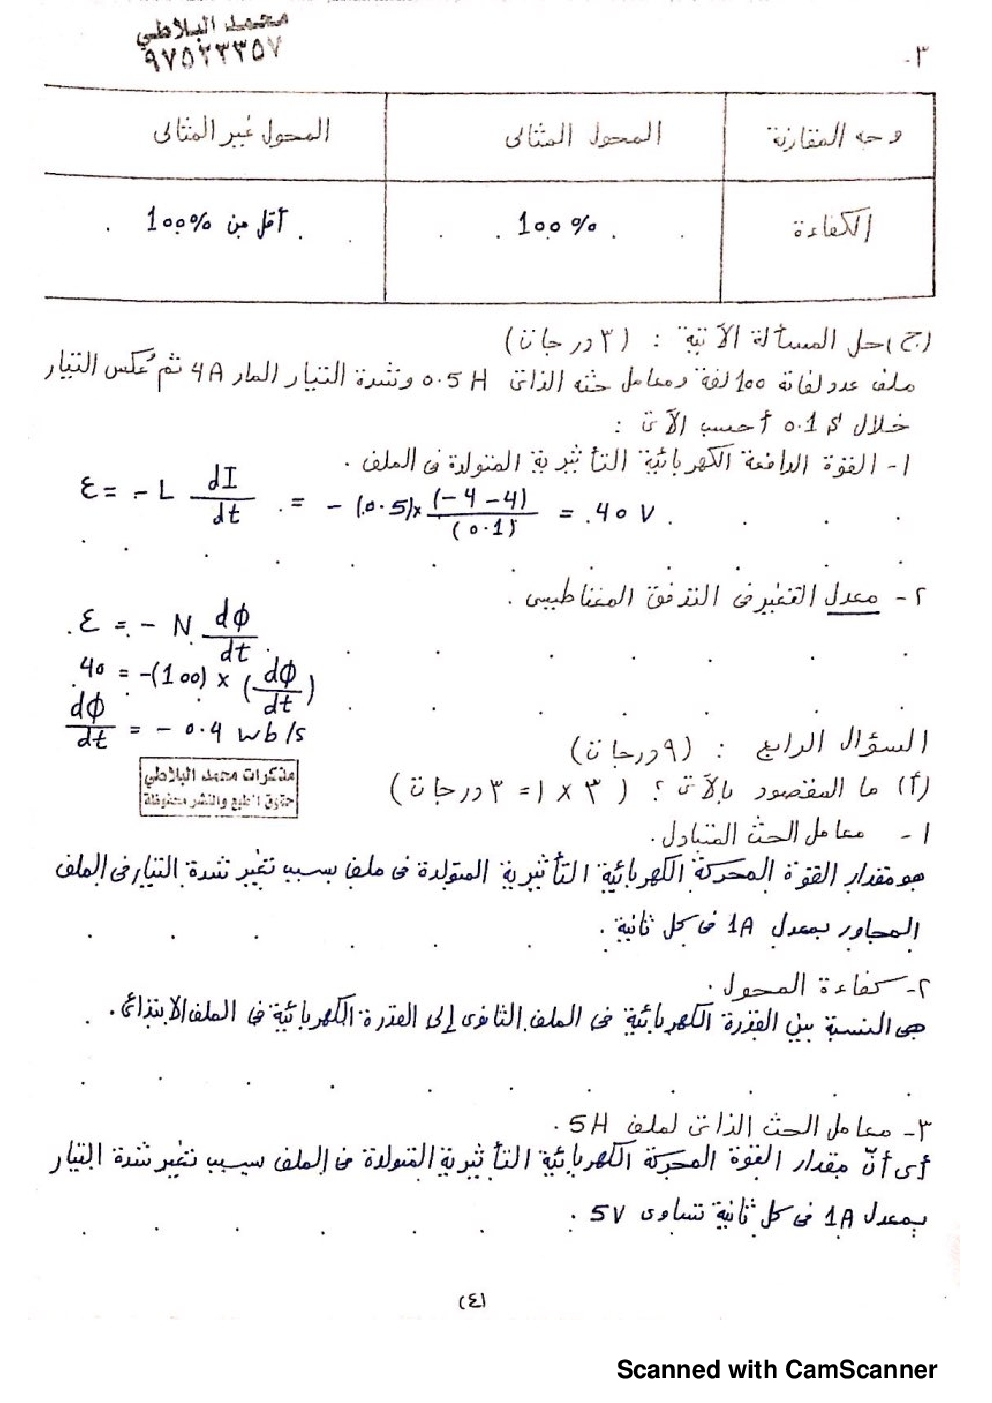 محمد البلاطي
٩٧٥٢٣٣٥٧
٣.
وجه المقارنة | المحول المثالى | المحول غير المثالى
الكفاءة | 100% | أقل من 100%
(ج) حل المسألة الآتية : (٣ درجات)
ملف عدد لفاته 100 لفة ومعامل حثه الذاتى 0.5 H وشدة التيار المار 4A ثم عُكس التيار
خلال 0.1 s أحسب الآتى :
١- القوة الدافعة الكهربائية التأثيرية المتولدة فى الملف .
ε = - L dI/dt = - (0.5) x (-4 -4)/(0.1) = 40 V
٢- معدل التغير فى التدفق المغناطيسى .
ε = - N dϕ/dt
40 = -(100) x (dϕ/dt)
dϕ/dt = - 0.4 wb/s
السؤال الرابع : (٩ درجات)
مذكرات محمد البلاطي
حقوق الطبع والنشر محفوظة
(أ) ما المقصود بالآتى ؟ ( ٣ x ١ = ٣ درجات)
١- معامل الحث المتبادل .
هو مقدار القوة المحركة الكهربائية التأثيرية المتولدة فى ملف بسبب تغير شدة التيار فى الملف
المجاور بمعدل 1A فى كل ثانية .
٢- كفاءة المحول .
هى النسبة بين القدرة الكهربائية فى الملف الثانوى إلى القدرة الكهربائية فى الملف الابتدائى .
٣- معامل الحث الذاتى لملف 5H .
أى أنّ مقدار القوة المحركة الكهربائية التأثيرية المتولدة فى الملف بسبب تغير شدة التيار
بمعدل 1A فى كل ثانية تساوى 5V .
(٤)
Scanned with CamScanner